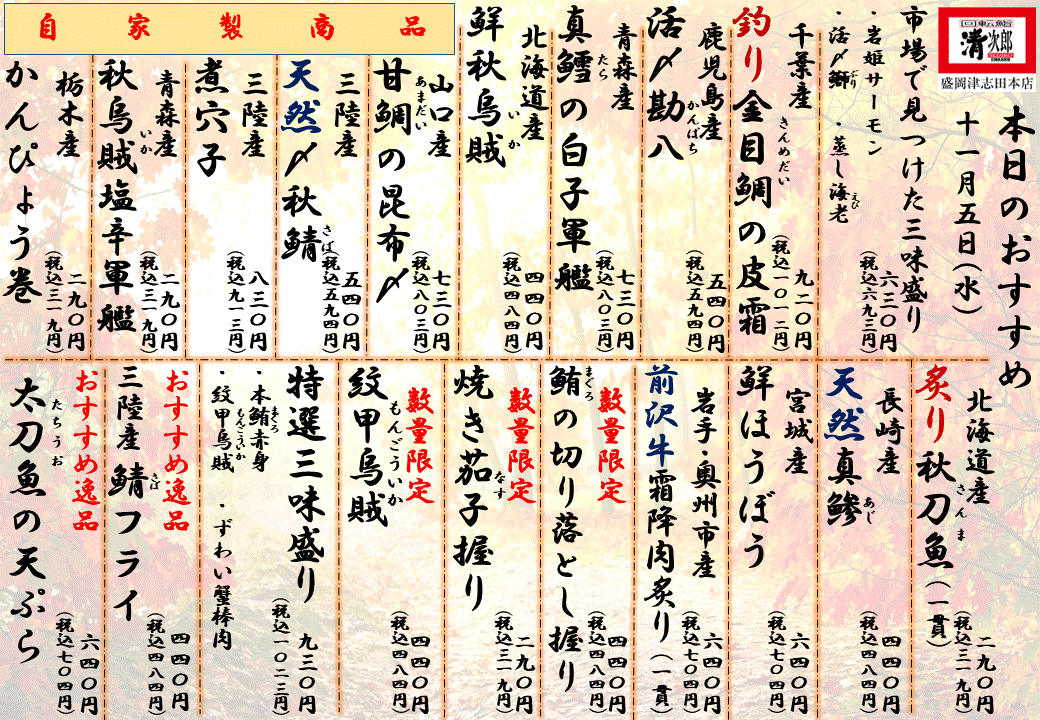 回転鮨
清次郎
盛岡津志田本店
本日のおすすめ
十一月五日(水)
市場で見つけた三味盛り
・岩姫サーモン
・活〆鰤 ・蒸し海老
ぶり
えび
六三〇円
(税込六九三円)
千葉産
釣り金目鯛の皮霜
きんめだい
九二〇円
(税込一〇一二円)
鹿児島産
活〆勘八
かんぱち
五四〇円
(税込五九四円)
青森産
真鱈の白子軍艦
たら
七三〇円
(税込八〇三円)
北海道産
鮮秋烏賊
いか
四四〇円
(税込四八四円)
自家製商品
山口産
甘鯛の昆布〆
あまだい
七三〇円
(税込八〇三円)
三陸産
天然〆秋鯖
さば
五四〇円
(税込五九四円)
三陸産
煮穴子
八三〇円
(税込九一三円)
青森産
秋烏賊塩辛軍艦
いか
二九〇円
(税込三一九円)
栃木産
かんぴょう巻
二九〇円
(税込三一九円)
北海道産
炙り秋刀魚(一貫)
さんま
二九〇円
(税込三一九円)
長崎産
天然真鯵
あじ
四四〇円
(税込四八四円)
宮城産
鮮ほうぼう
六四〇円
(税込七〇四円)
岩手・奥州市産
前沢牛霜降肉炙り(一貫)
六四〇円
(税込七〇四円)
数量限定
鮪の切り落とし握り
まぐろ
四四〇円
(税込四八四円)
数量限定
焼き茄子握り
なす
二九〇円
(税込三一九円)
数量限定
紋甲烏賊
もんごういか
四四〇円
(税込四八四円)
特選三味盛り
・本鮪赤身
まぐろ
・紋甲烏賊 ・ずわい蟹棒肉
もんごういか
九三〇円
(税込一〇二三円)
おすすめ逸品
三陸産鯖フライ
さば
四四〇円
(税込四八四円)
おすすめ逸品
太刀魚の天ぷら
たちうお
六四〇円
(税込七〇四円)